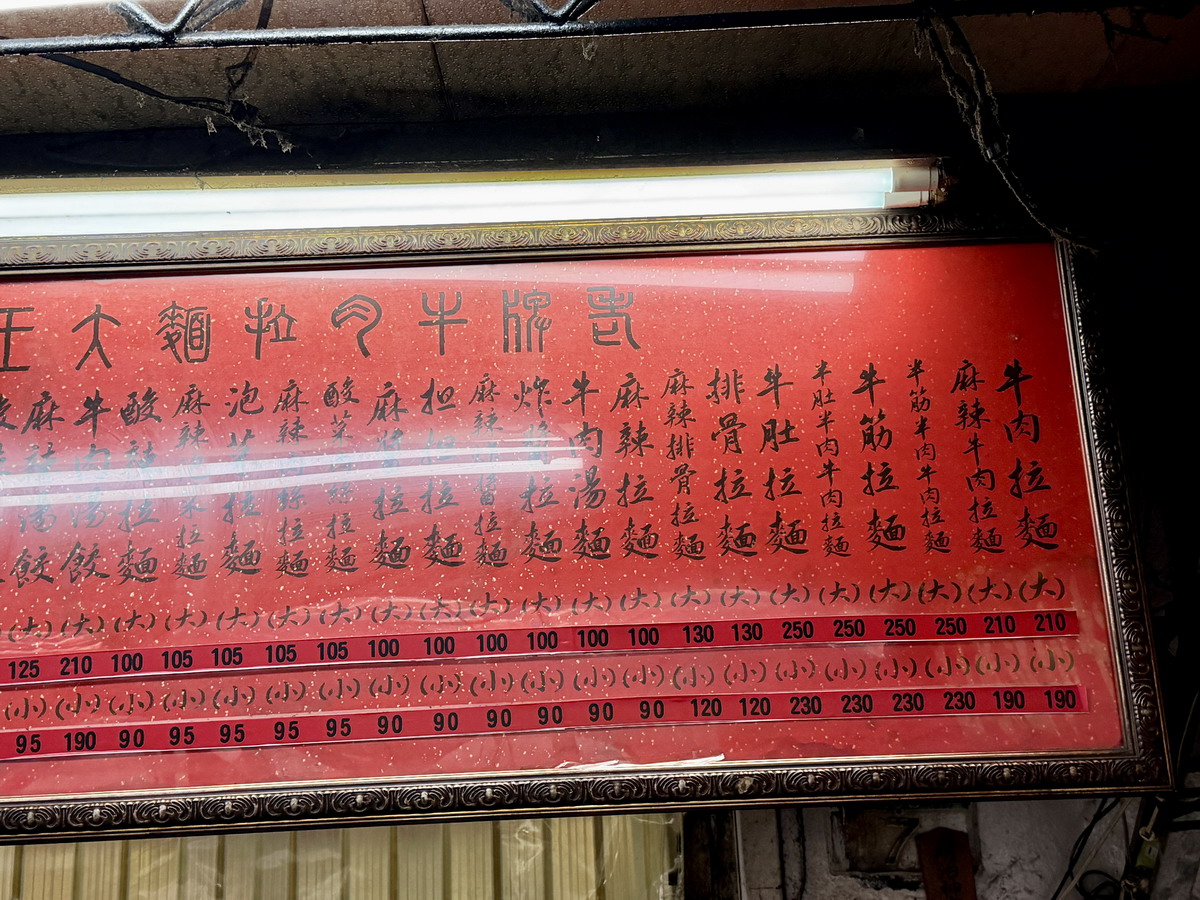 老牌牛肉拉麵大王
牛肉拉麵(大)210(小)190
麻辣牛肉拉麵(大)210(小)190
半筋半肉牛肉拉麵(大)250(小)230
牛筋拉麵(大)250(小)230
半肚半肉牛肉拉麵(大)250(小)230
牛肚拉麵(大)250(小)230
排骨拉麵(大)130(小)120
麻辣排骨拉麵(大)130(小)120
麻辣拉麵(大)100(小)90
牛肉湯麵(大)100(小)90
炸醬拉麵(大)100(小)90
麻辣炸醬拉麵(大)100(小)90
担担拉麵(大)100(小)90
麻醬拉麵(大)100(小)90
酸菜肉絲拉麵(大)105(小)95
麻辣肉絲拉麵(大)105(小)95
泡菜拉麵(大)105(小)95
麻辣泡菜拉麵(大)105(小)95
酸辣拉麵(大)100(小)90
牛肉湯餃(大)210(小)190
麻辣湯餃(大)125(小)95